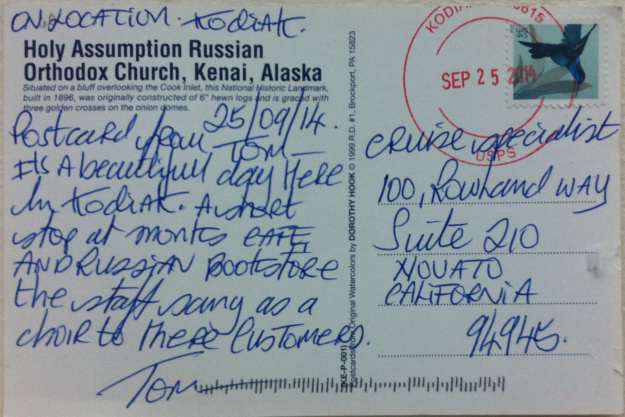 ON LOCATION. KODIAK.
Holy Assumption Russian
Orthodox Church, Kenai, Alaska
Situated on a bluff overlooking the Cook Inlet, this National Historic Landmark,
built in 1896, was originally constructed of 6" hewn logs and is graced with
three golden crosses on the onion domes.
25/09/14.
Postcard from TOM
It's A beautifull day Here
In KODIAK. A short
stop at monks CAFE,
AND RUSSIAN BOOKSTORE
the staff sang as a
choir to there Customers.
Tom
(KE-P-001)
Postcards from Original Watercolors by DOROTHY HOOK © 1999 R.D. #1, Brockport, PA 15823
KODIAK
SEP 25 2014
USPS
cruise specialist
100, Rowland WAY
Suite 210
NOVATO
CALIFORNIA
94945.